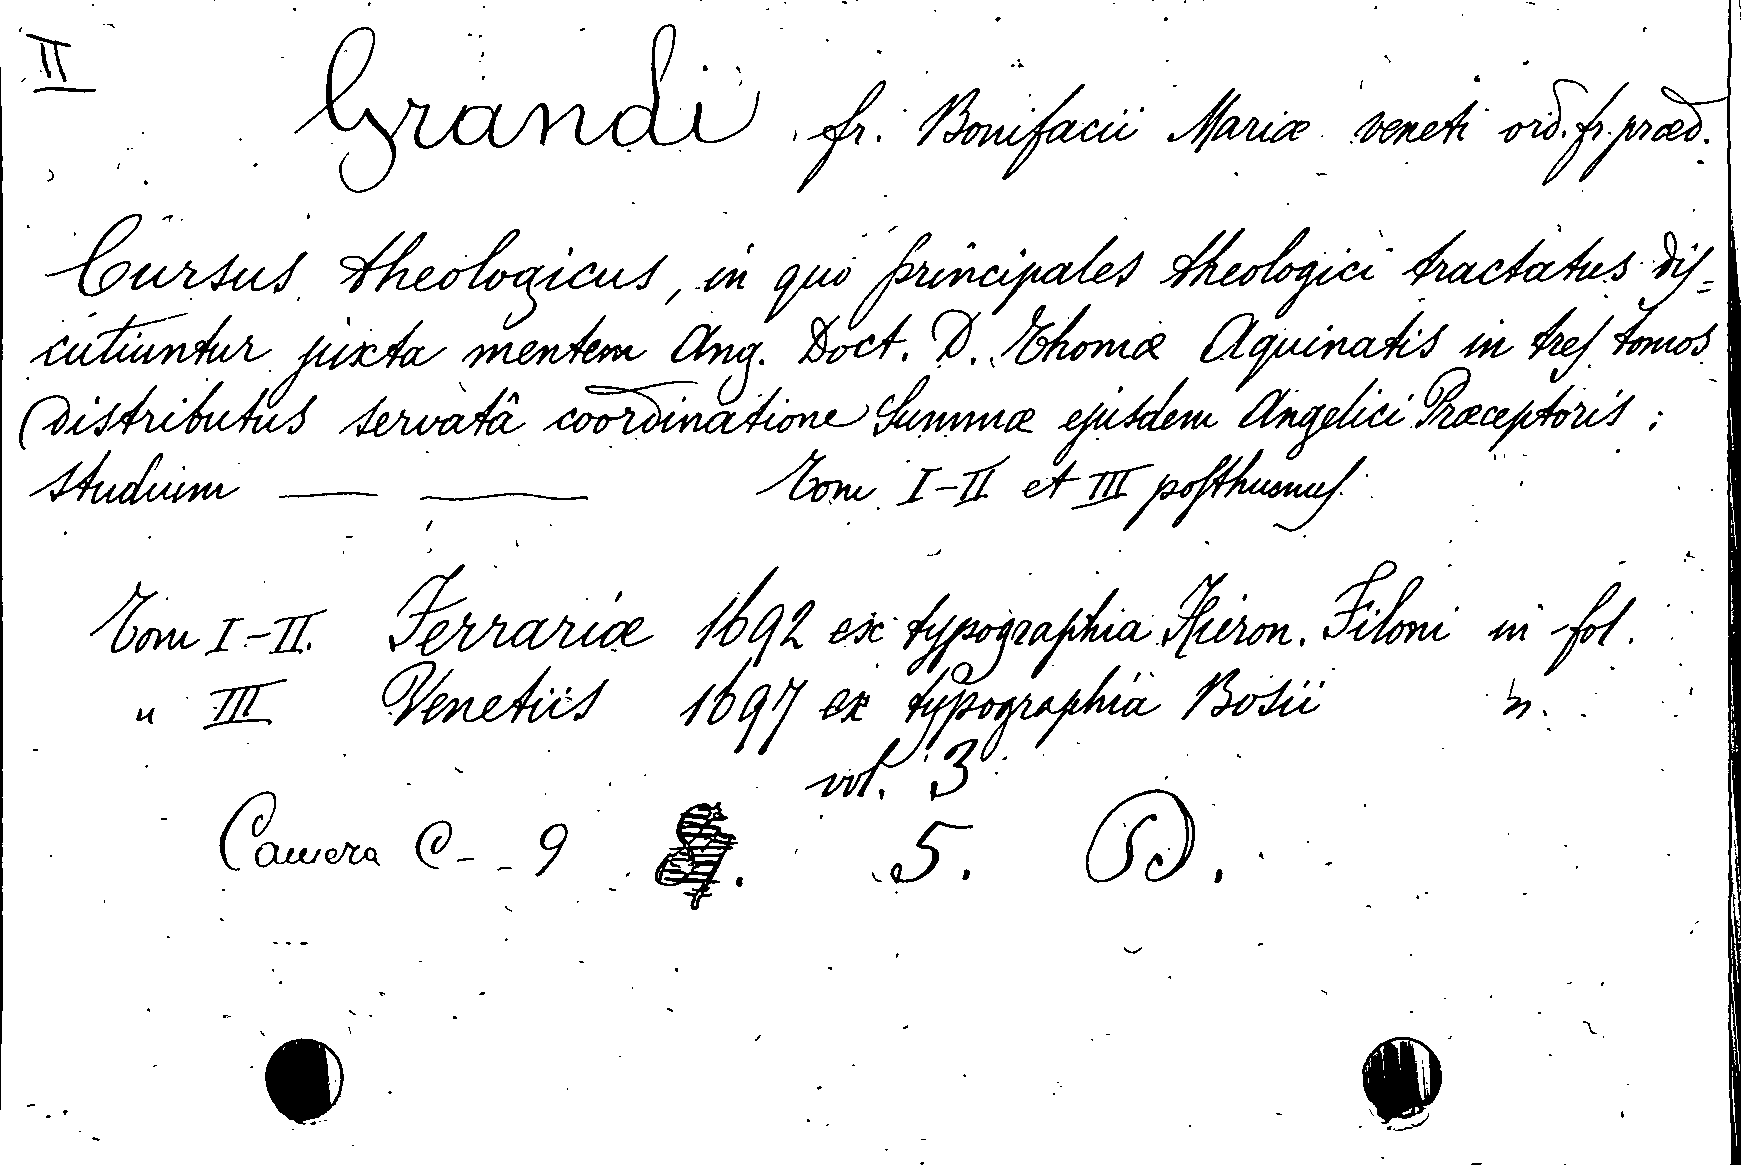 II
Grandi fr. Bonifacii Mariæ veneti ord. fr. præd.
Cursus theologicus, in quo principales theologici tractatus dis=
cutiuntur juxta mentem Ang. Doct. D. Thomæ Aquinatis in tres tomos
distributus servatâ coordinatione Summæ ejusdem Angelici Præceptoris :
studium — — Tom I-II et III posthumus.
Tom I-II. Ferrariæ 1692 ex typographia Hieron. Filoni in fol.
" III Venetiis 1697 ex typographia Bosii
vol. 3
Camera C - - 9 5. D.